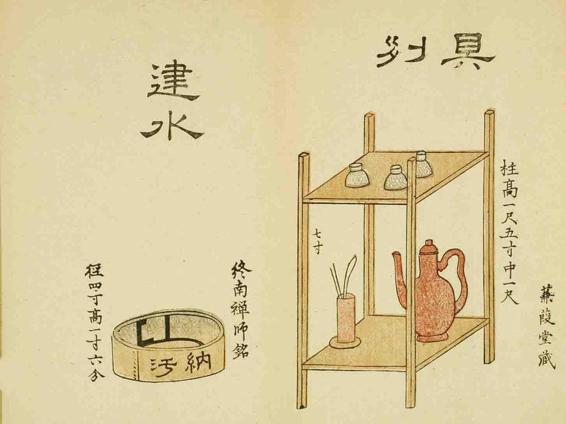 具列
蒹葭堂藏
柱高一尺五寸中一尺
七寸
建水
終南禪師銘
納汚
径四寸高一寸六分